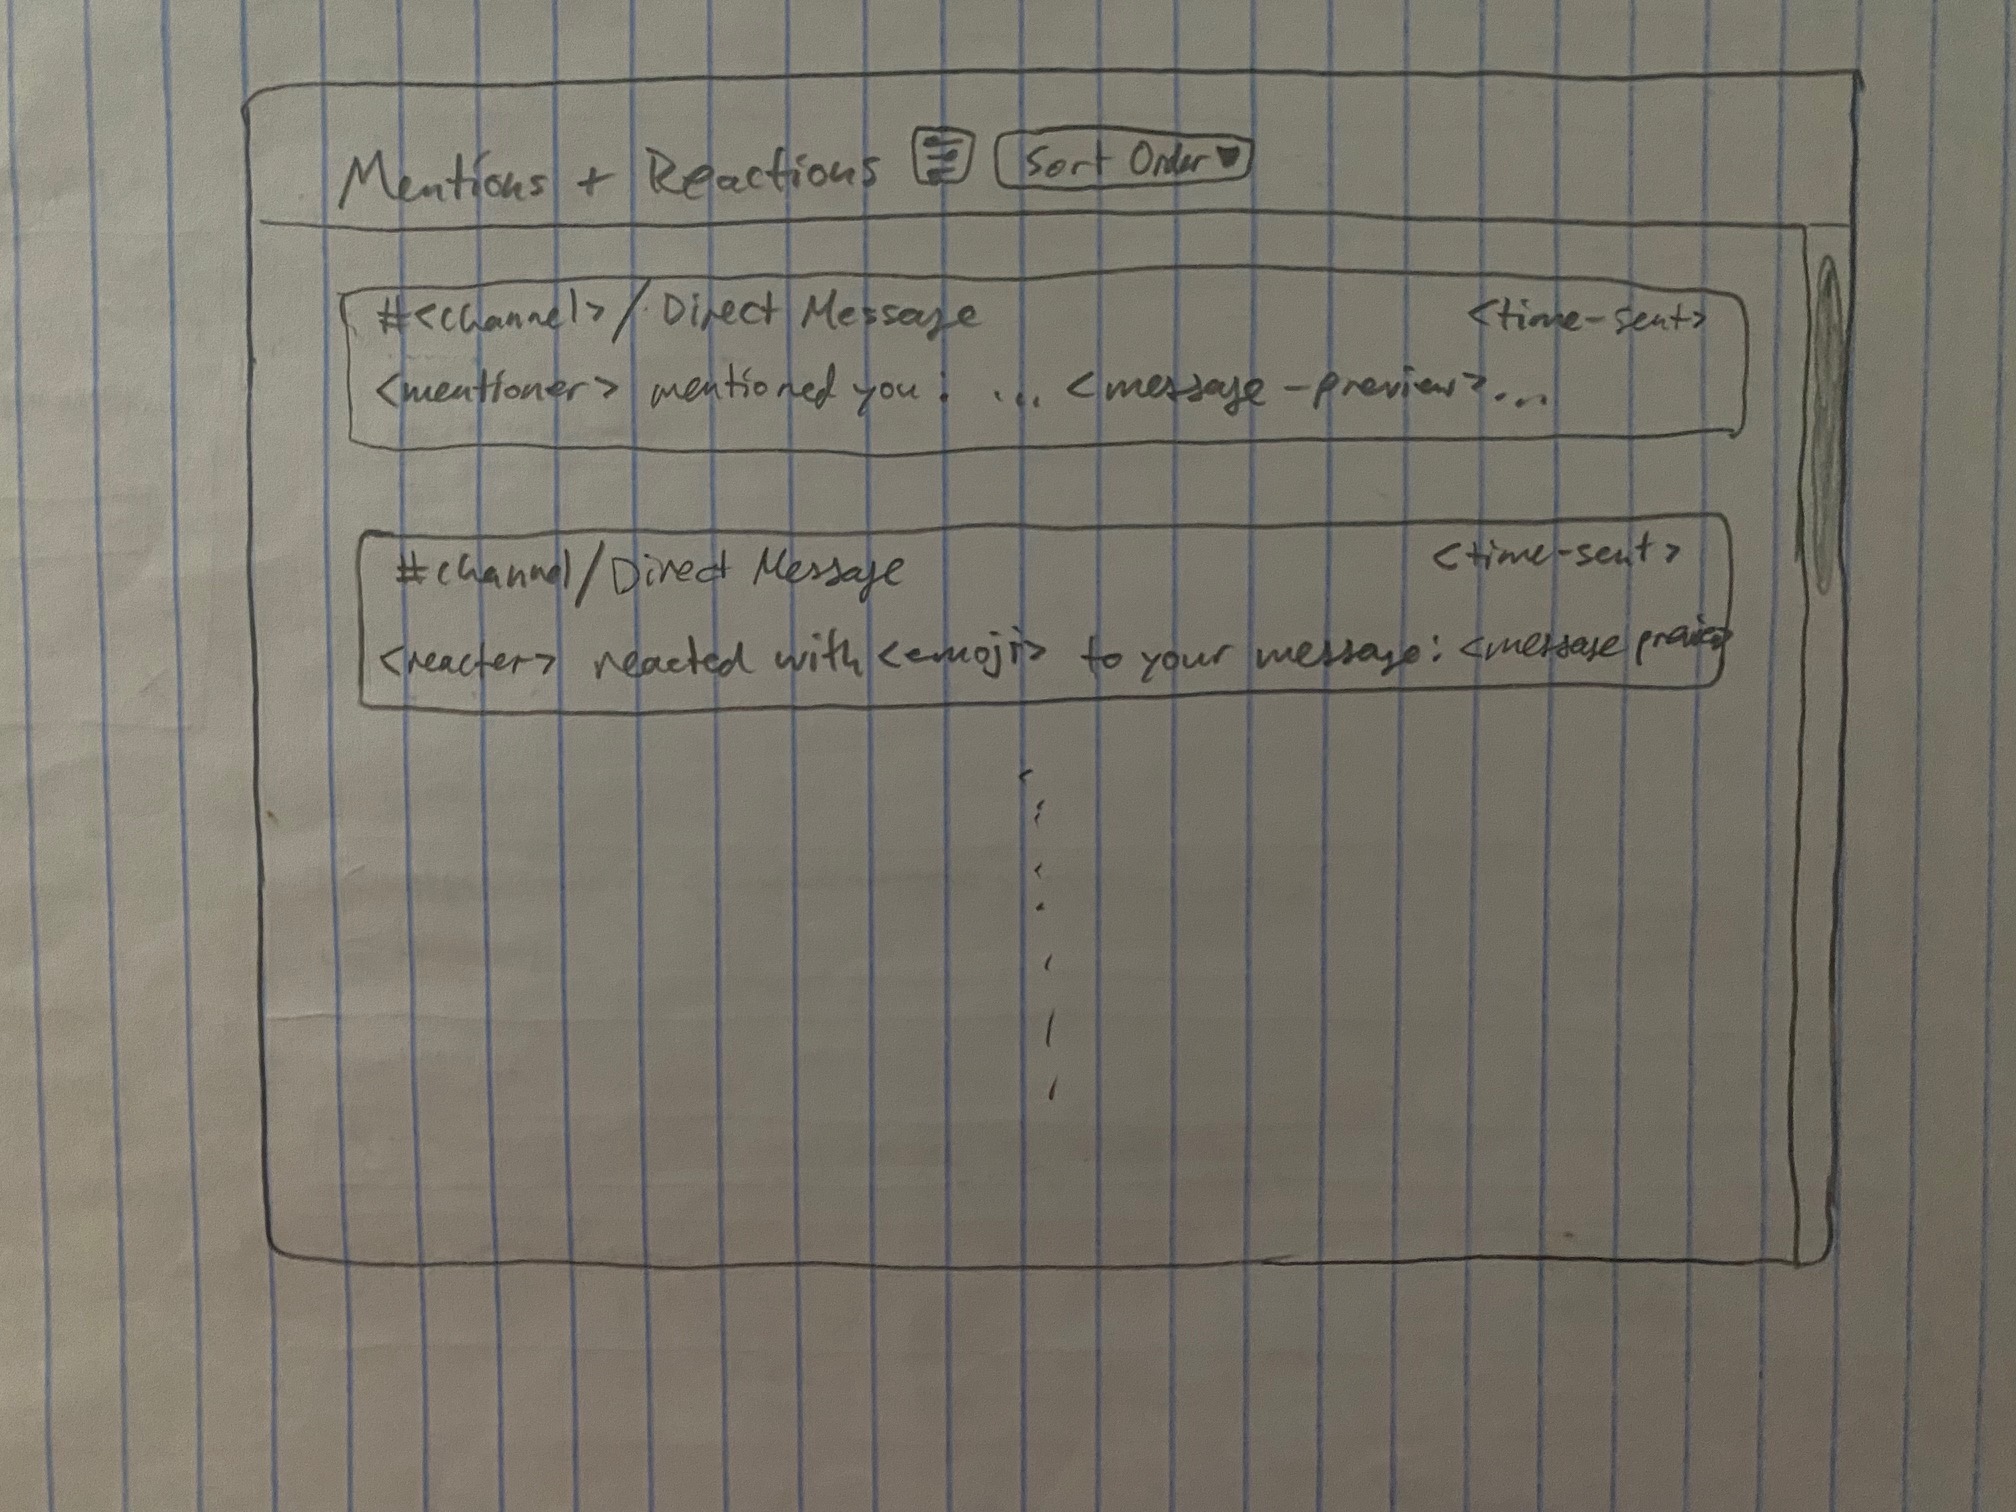 Mentions + Reactions Sort Order
#<channel>/Direct Message <time-sent>
<mentioner> mentioned you: ... <message-preview>...
#channel/Direct Message <time-sent>
<reacter> reacted with <emoji> to your message: <message preview>